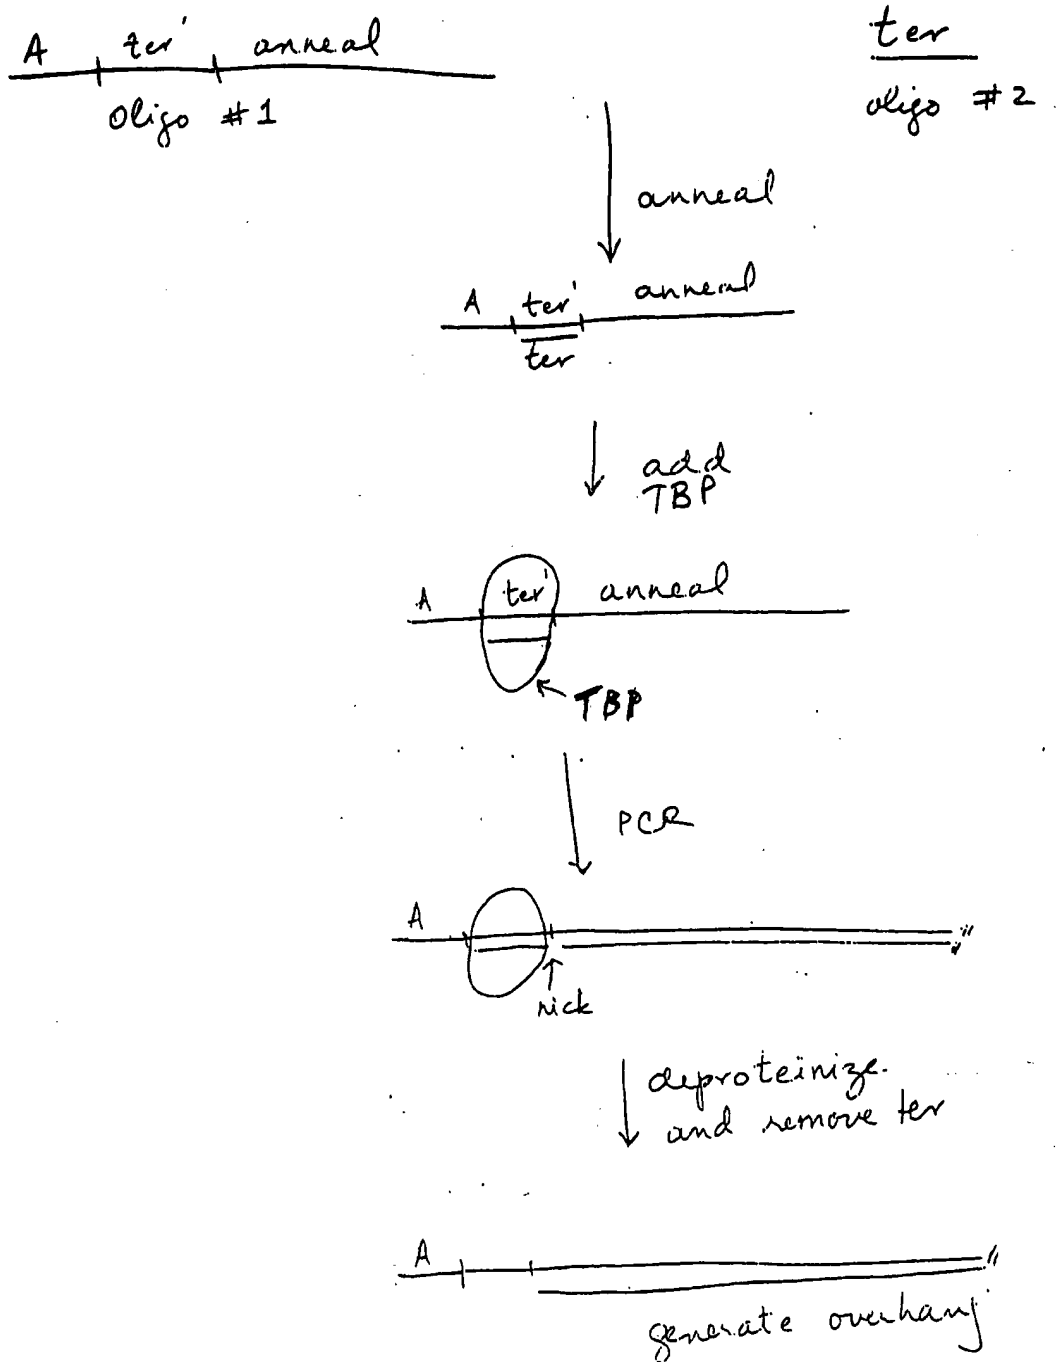 A ter' anneal
ter
Oligo #1
oligo #2
anneal
A ter' anneal
ter
add
TBP
A ter' anneal
TBP
PCR
A
nick
deproteinize.
and remove ter
A
generate overhang